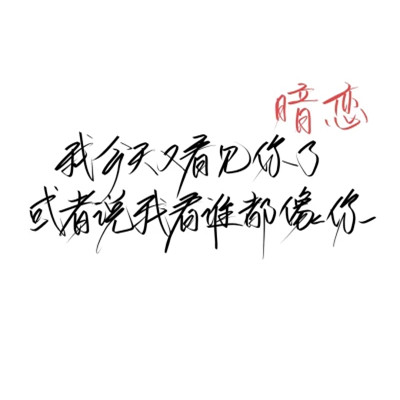 暗恋
我今天又看见你了
或者说我看谁都像你